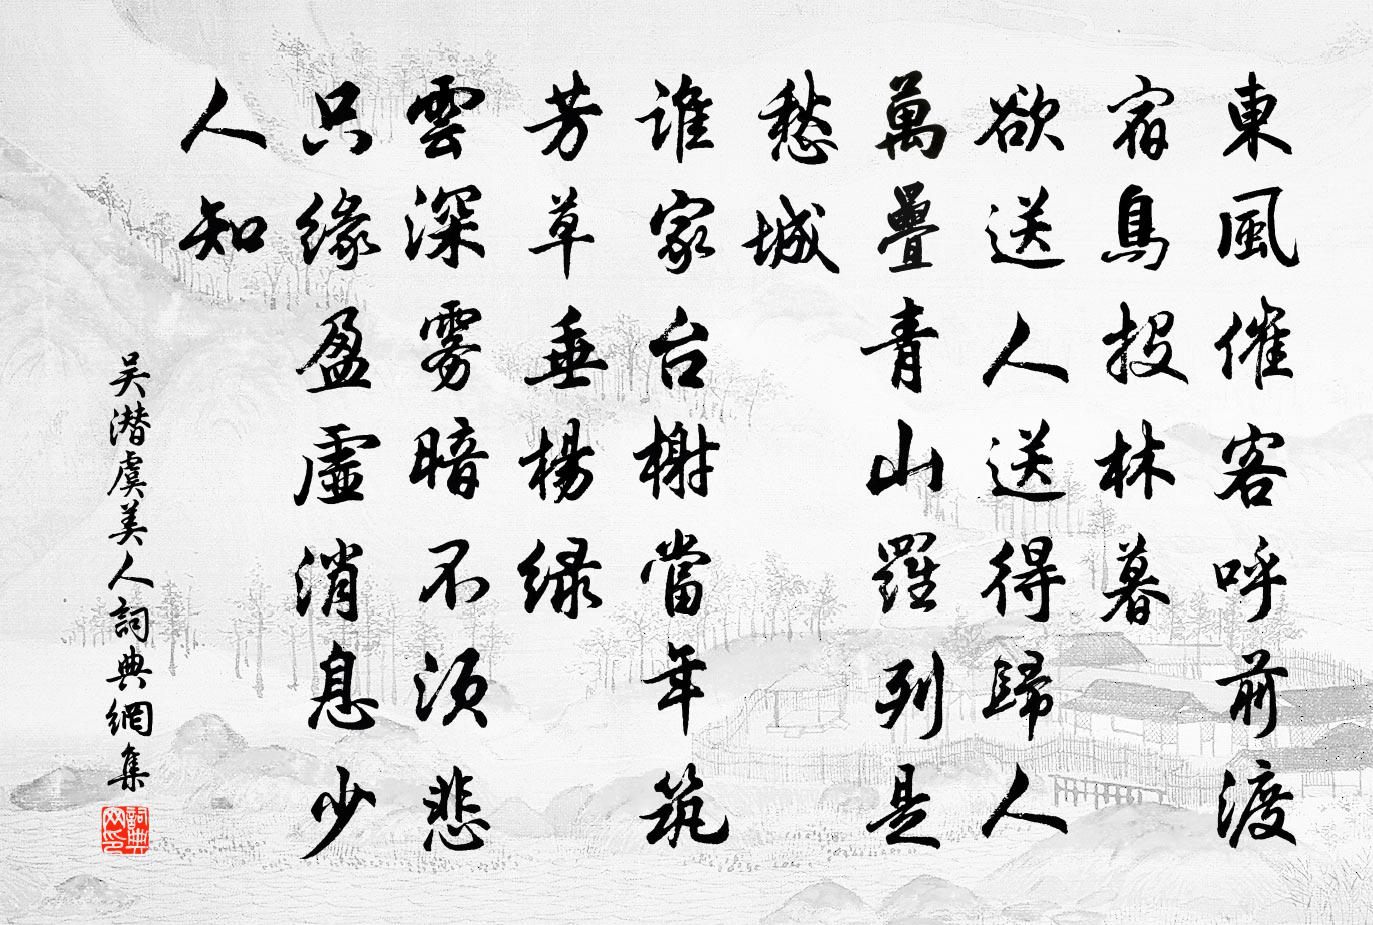 東風催客呼前渡
宿鳥投林暮
欲送人送得歸人
萬疊青山羅列是
愁城
谁家台榭當年筑
芳草垂楊緑
雲深雾暗不须悲
只缘盈虛消息少
人知
吴潜虞美人詞典網集
詞典网印